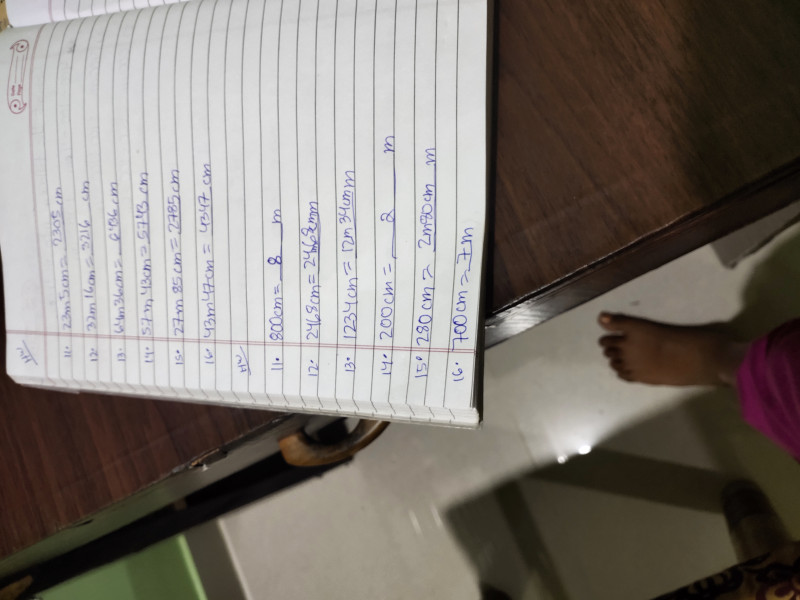 HW
11. 23m5cm = 2305 cm
12. 32m 16cm = 3216 cm
13. 64m36cm = 6436 cm
14. 57m 43cm = 5743 cm
15. 27m 85cm = 2785 cm
16. 43m47cm = 4347 cm
HW
11. 800cm = 8 m
12. 2468cm =
13. 1234cm = 12m 34cm m
14. 200cm = 2 m
15. 280cm = 2m80cm m
16. 700cm = 7m